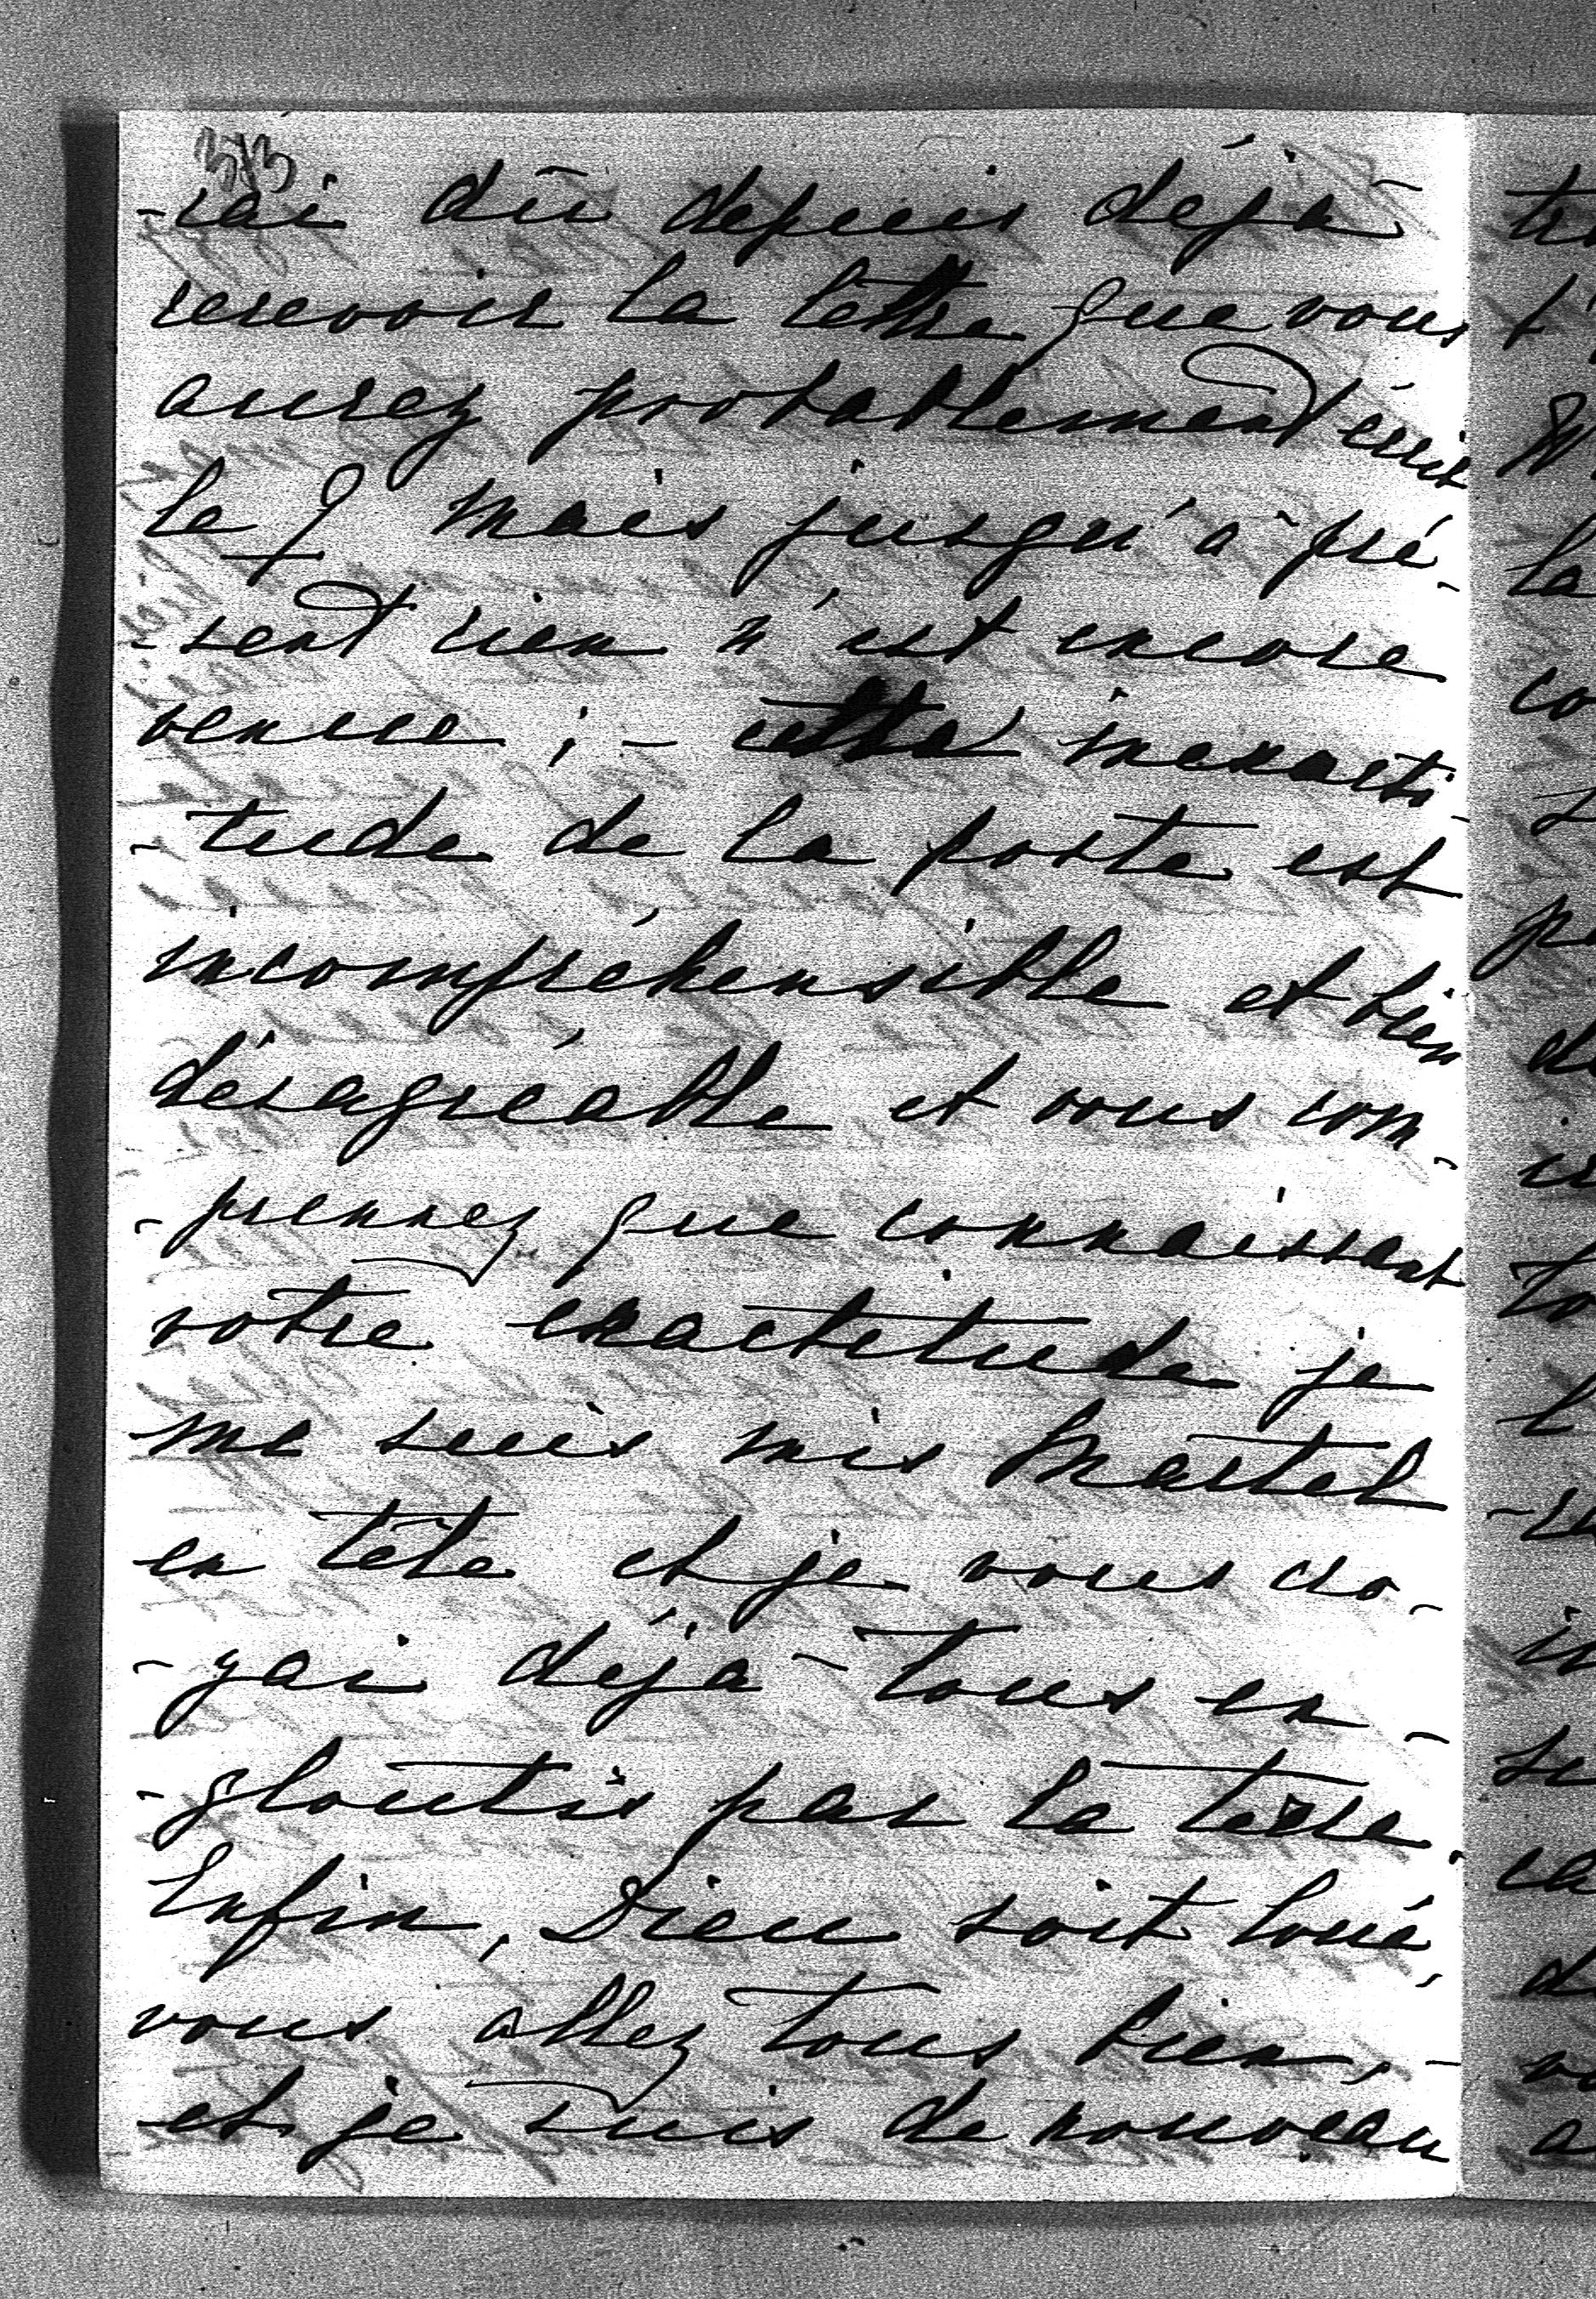 313
-rai dû depuis déjà
recevoir la lettre que vous
aurez probablement écrit
le 9 mais jusqu'à pré-
-sent rien n'est encore
venue ; - cette inexacti-
-tude de la poste est
incompréhensible et bien
désagréable et vous com-
-prennez que connaissant
votre exactitude je
me suis mis Martel
en tête et je vous cro-
-yai déjà tous en-
-gloutis par la terre.
Enfin, Dieu soit loué,
vous allez tous bien, -
et je suis de nouveau